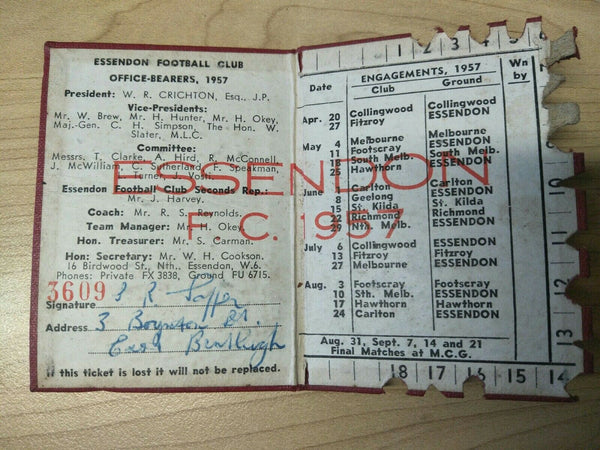 ESSENDON FOOTBALL CLUB
OFFICE-BEARERS, 1957
President: W. R. CRICHTON, Esq., J.P.
Vice-Presidents:
Mr. W. Brew, Mr. H. Hunter, Mr. H. Okey,
Maj.-Gen. C. H. Simpson, The Hon. W.
Slater, M.L.C.
Committee:
Messrs. T. Clarke, A. Hird, R. McConnell,
J. McWilliam, C. Sutherland, F. Speakman,
Turner, J. Vosti.
Essendon Football Club Seconds Rep.:
Mr. J. Harvey.
Coach: Mr. R. S. Reynolds.
Team Manager: Mr. H. Okey.
Hon. Treasurer: Mr. S. Carman.
Hon: Secretary: Mr. W. H. Cookson,
16 Birdwood St., Nth. Essendon, W.6.
Phones: Private FX 3838, Ground FU 6715.
3609
Signature
Address 3
East
If this ticket is lost it will not be replaced.
ESSENDON
F.C. 1957
1 2 3 4
ENGAGEMENTS, 1957
Date Club Ground Wn by
Apr. 20 Collingwood Collingwood
27 Fitzroy ESSENDON
May 4 Melbourne Melbourne
11 Footscray ESSENDON
18 South Melb. South Melb.
25 Hawthorn ESSENDON
June 1 Carlton Carlton
8 Geelong ESSENDON
15 St. Kilda St. Kilda
22 Richmond Richmond
29 Nth. Melb. ESSENDON
July 6 Collingwood ESSENDON
13 Fitzroy Fitzroy
27 Melbourne ESSENDON
Aug. 3 Footscray Footscray
10 Sth. Melb. ESSENDON
17 Hawthorn Hawthorn
24 Carlton ESSENDON
Aug. 31, Sept. 7, 14 and 21
Final Matches at M.C.G.
10
11
12
13
18 17 16 15 14